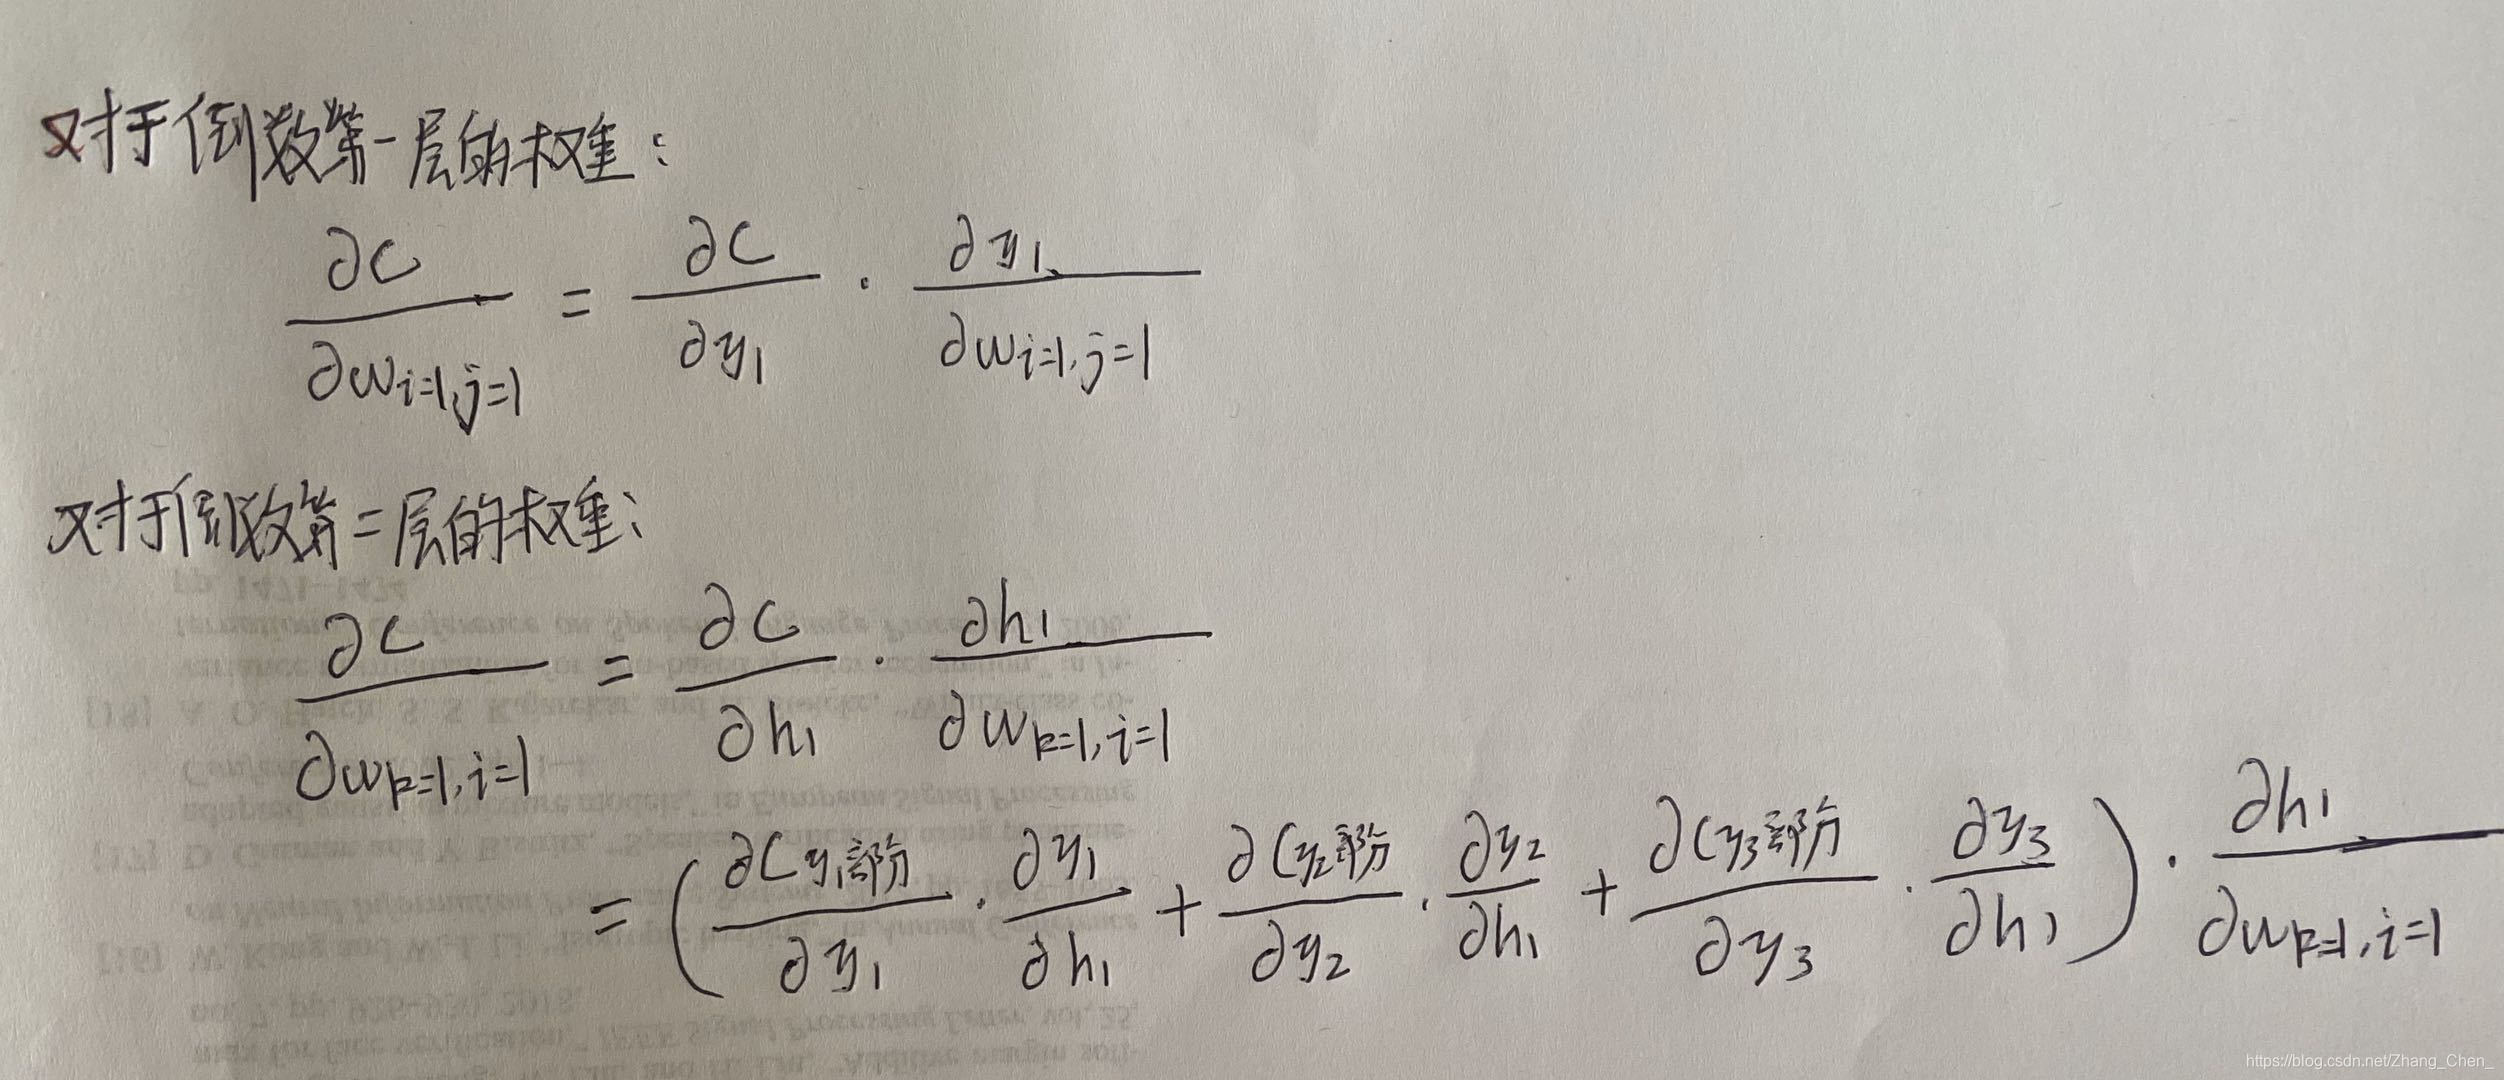 对于倒数第一层的权重：
∂C/∂w_{i=1,j=1} = ∂C/∂y₁ · ∂y₁/∂w_{i=1,j=1}
对于倒数第二层的权重：
∂C/∂w_{k=1,i=1} = ∂C/∂h₁ · ∂h₁/∂w_{k=1,i=1}
= (∂C_{y₁部分}/∂y₁ · ∂y₁/∂h₁ + ∂C_{y₂部分}/∂y₂ · ∂y₂/∂h₁ + ∂C_{y₃部分}/∂y₃ · ∂y₃/∂h₁) · ∂h₁/∂w_{k=1,i=1}
https://blog.csdn.net/Zhang_Chen_